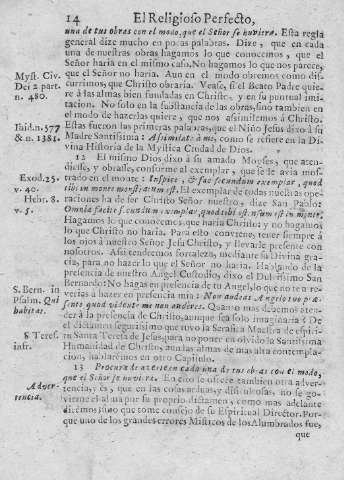 14 El Religioso Perfecto,
una de tus obras con el modo, que el Señor se huviera. Esta regla
general dize mucho en pocas palabras. Dize, que en cada
una de nuestras obras hagamos lo que conocemos, que el
Señor haria en el mismo caso. No hagamos lo que nos parece,
que el Señor no haria. Aun en el modo obremos como dis-
Myst. Civ.
Dei 2 part.
n. 480.
currimos, que Christo obraria. Vease, si el Beato Padre quie-
re á las almas bien fundadas en Christo, y en su puntual imi-
tacion. No solo en la substancia de las obras, sino tambien en
el modo de hazerlas quiere, que nos assimilemos á Christo.
Ibid. n. 577
& n. 1381.
Estas fueron las primeras palabras, que el Niño Jesus dixo á su
Madre Santissima: Assimilate á mi, como se refiere en la Di-
vina Historia de la Mystica Ciudad de Dios.
12 El mismo Dios dixo á su amado Moyses, que aten-
diesse, y obrasse, conforme al exemplar, que se le avia mos-
Exod. 25.
v. 40.
trado en el monte: Inspice, & fac secundum exemplar, quod
tibi in monte monstratum est. El exemplar de todas nuestras ope-
Hebr. 8.
v. 5.
raciones ha de ser Christo Señor nuestro, dize San Pablo:
Omnia facito secundum exemplar, quod tibi est visum est in monte.
Hagamos lo que conocemos, que haria Christo: y no hagamos
lo que Christo no haria. Para esto conviene, tener siempre á
los ojos á nuestro Señor Jesu Christo, y llevarle presente con
nosotros. Assi tendremos fortaleza, mediante su Divina gra-
cia, para no hazer lo que el Señor no haria. Hablando de la
presencia de nuestro Angel Custodio, dixo el Dulcissimo San
S. Bern. in
Psalm. Qui
habitat.
Bernardo: No hagas en presencia de tu Angel, lo que no te a re-
verias á hazer en presencia mia:
Quanto mas devemos aten-
der á la presencia de Christo, aunque sea solo imaginaria? De
el dictamen segurissimo que tuvo la Serafica Maestra de espiri-
S. Teres.
infr.
tu Santa Teresa de Jesus, para no poner en olvido la Santissima
Humanidad de Christo, aun las almas de mas alta contempla-
cion, hablarémos en otro Capitulo.
13 Procura de azer bien cada una de tus obras con el modo,
Adver-
tencia.
que el Señor se huviera. En esto se ofrece tambien otra adver-
tencia, y es, que en las cosas arduas, y dificultosas, no se go-
vierne el alma por su proprio dictamen, como mas adelante
dirémos, sino que tome consejo de su Espiritual Director. Por-
que uno de los grandes errores Misticos de los Alumbrados fue,
que